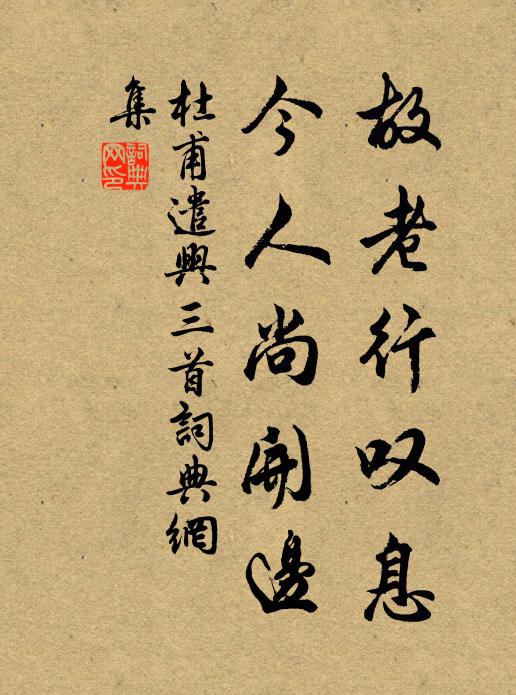 故老行叹息
今人尚開邊
杜甫遣興三首詞典網
集
詞典
网印